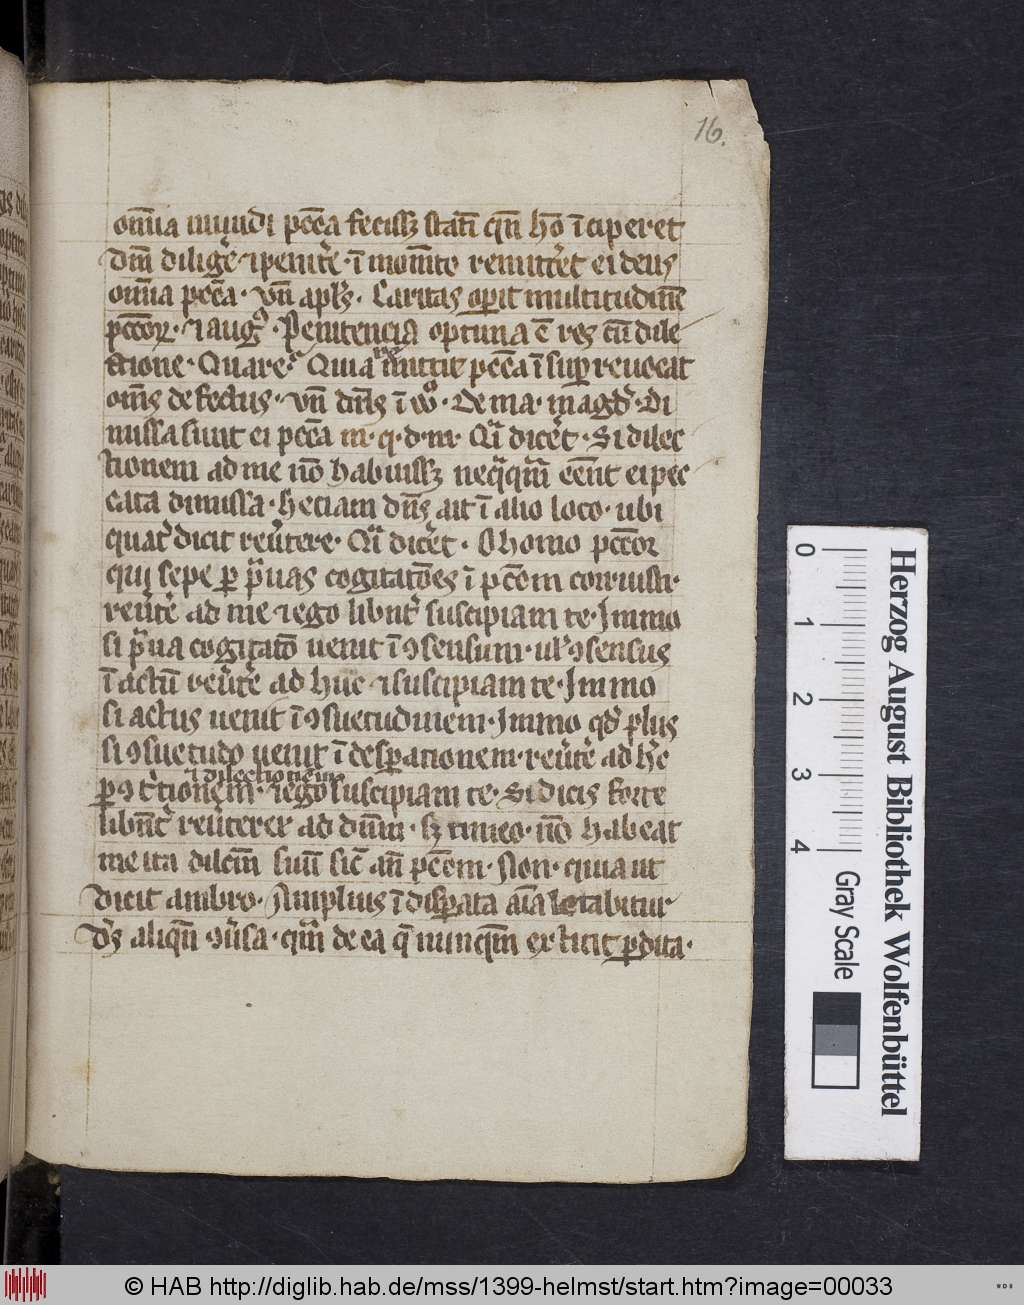 16.
om̄ia mundi pcc̄a fecisset statī qn̄ hō īciperet
dm̄ diligē ⁊ penitē · ī momēto remitt'et ei deus
om̄ia pcc̄a · vn̄ apl's · Caritas operit multitudinē
pcc̄or · ⁊ aug' · Penitencia optima ē res cū dile
ctione · Quare · Quia mittit pcc̄a ī sup revocat
om̄s defectus · vn̄ dn̄s ī · De ma · magd' · Di
missa sunt ei pcc̄a m · q · d · m · Qi dic'et · Si dilec
tionem ad me nō habuisset neqqm̄ eēnt ei pec
cata dimissa · hec iam dn̄s ait ī alio loco · ubi
quat' dicit reu'tere · Qi dic'et · O homo pccor
qui sepe p pͣuas cogitatōes ī pccm corruisti ·
reu'tē ad me ⁊ ego libnt' suscipiam te · Immo
si pͣua cogitatō uenit ī ꝯsensum · ul' ꝯsensus
ī actū reu'tē ad huc ⁊ suscipiam te · Immo
si actus uenit ī ꝯsuetudinem · Immo qd' plus
si ꝯsuetudo uenit ī desperationem · reu'tē ad h'c
⁊ dilectionem
p ꝯt'tionem · ⁊ ego suscipiam te · Si dicis forte
libn̄t' reu'terer ad dnm · sz timeo · nō habeat
me ita dilcm̄ suū sic' an̄ pcc̄m · Non · quia ut
dicit ambro · Amplius ī disperata aīa letabitur
d's aliqn̄ ꝯu'sa · qm̄ de ea q̄ nunqm̄ extitit pdita ·
Herzog August Bibliothek Wolfenbüttel
0 1 2 3 4 Gray Scale
© HAB http://diglib.hab.de/mss/1399-helmst/start.htm?image=00033